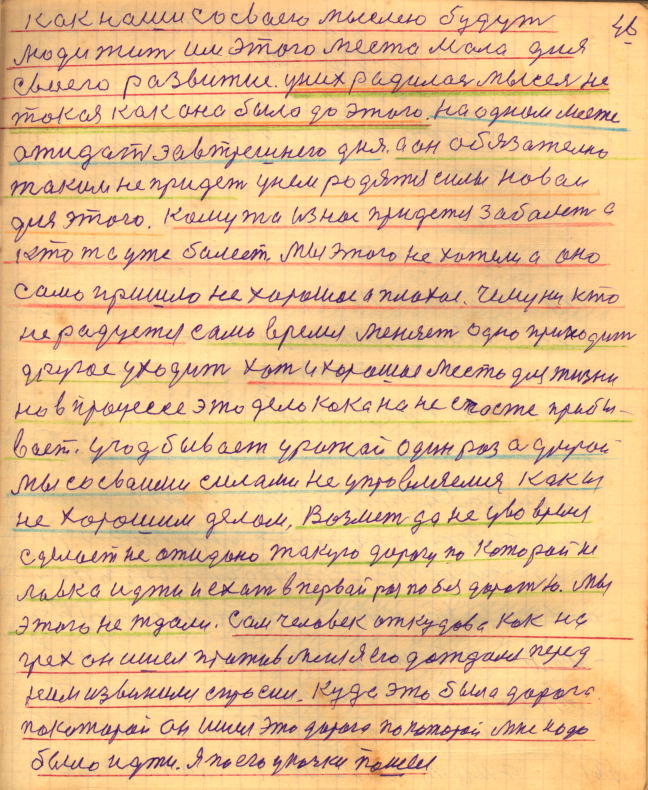 как наши со своею мыслею будут 46
люди жит им этого места мала для
своего развитие. у них радилася мысля не
такая как она было до этого. на одном месте
ожидат завтрешнего дня. а он обязателно
таким не придет у нем родятся силы новаи
для этого. Кому та из нас придется заболет а
кто та уже балеет. Мы этого не хотели а оно
само пришло не хорошое а плохое. Чему ни кто
не радуется само время меняет одно приходит
другое уходит хот и хорошае место для жизни
но в процессе это дело кока на не спосте прибы-
вает. У год бывает урожай один раз а другой
мы со своими силами не управляемия как и
не хорошим делом. Возмет да не у во время
сделает не ожидано такую дорогу по которай не
ловка иджи и ехат в первай раз по без дорож ю. Мы
этого не ждали. Сам человек откудова как на
грех он ишел против меня я его дождался перед
ним извинился спросил. Куда это была дорога
по которой он ишел это дорога по которой мне надо
было иджи. Я по его упочки пошел